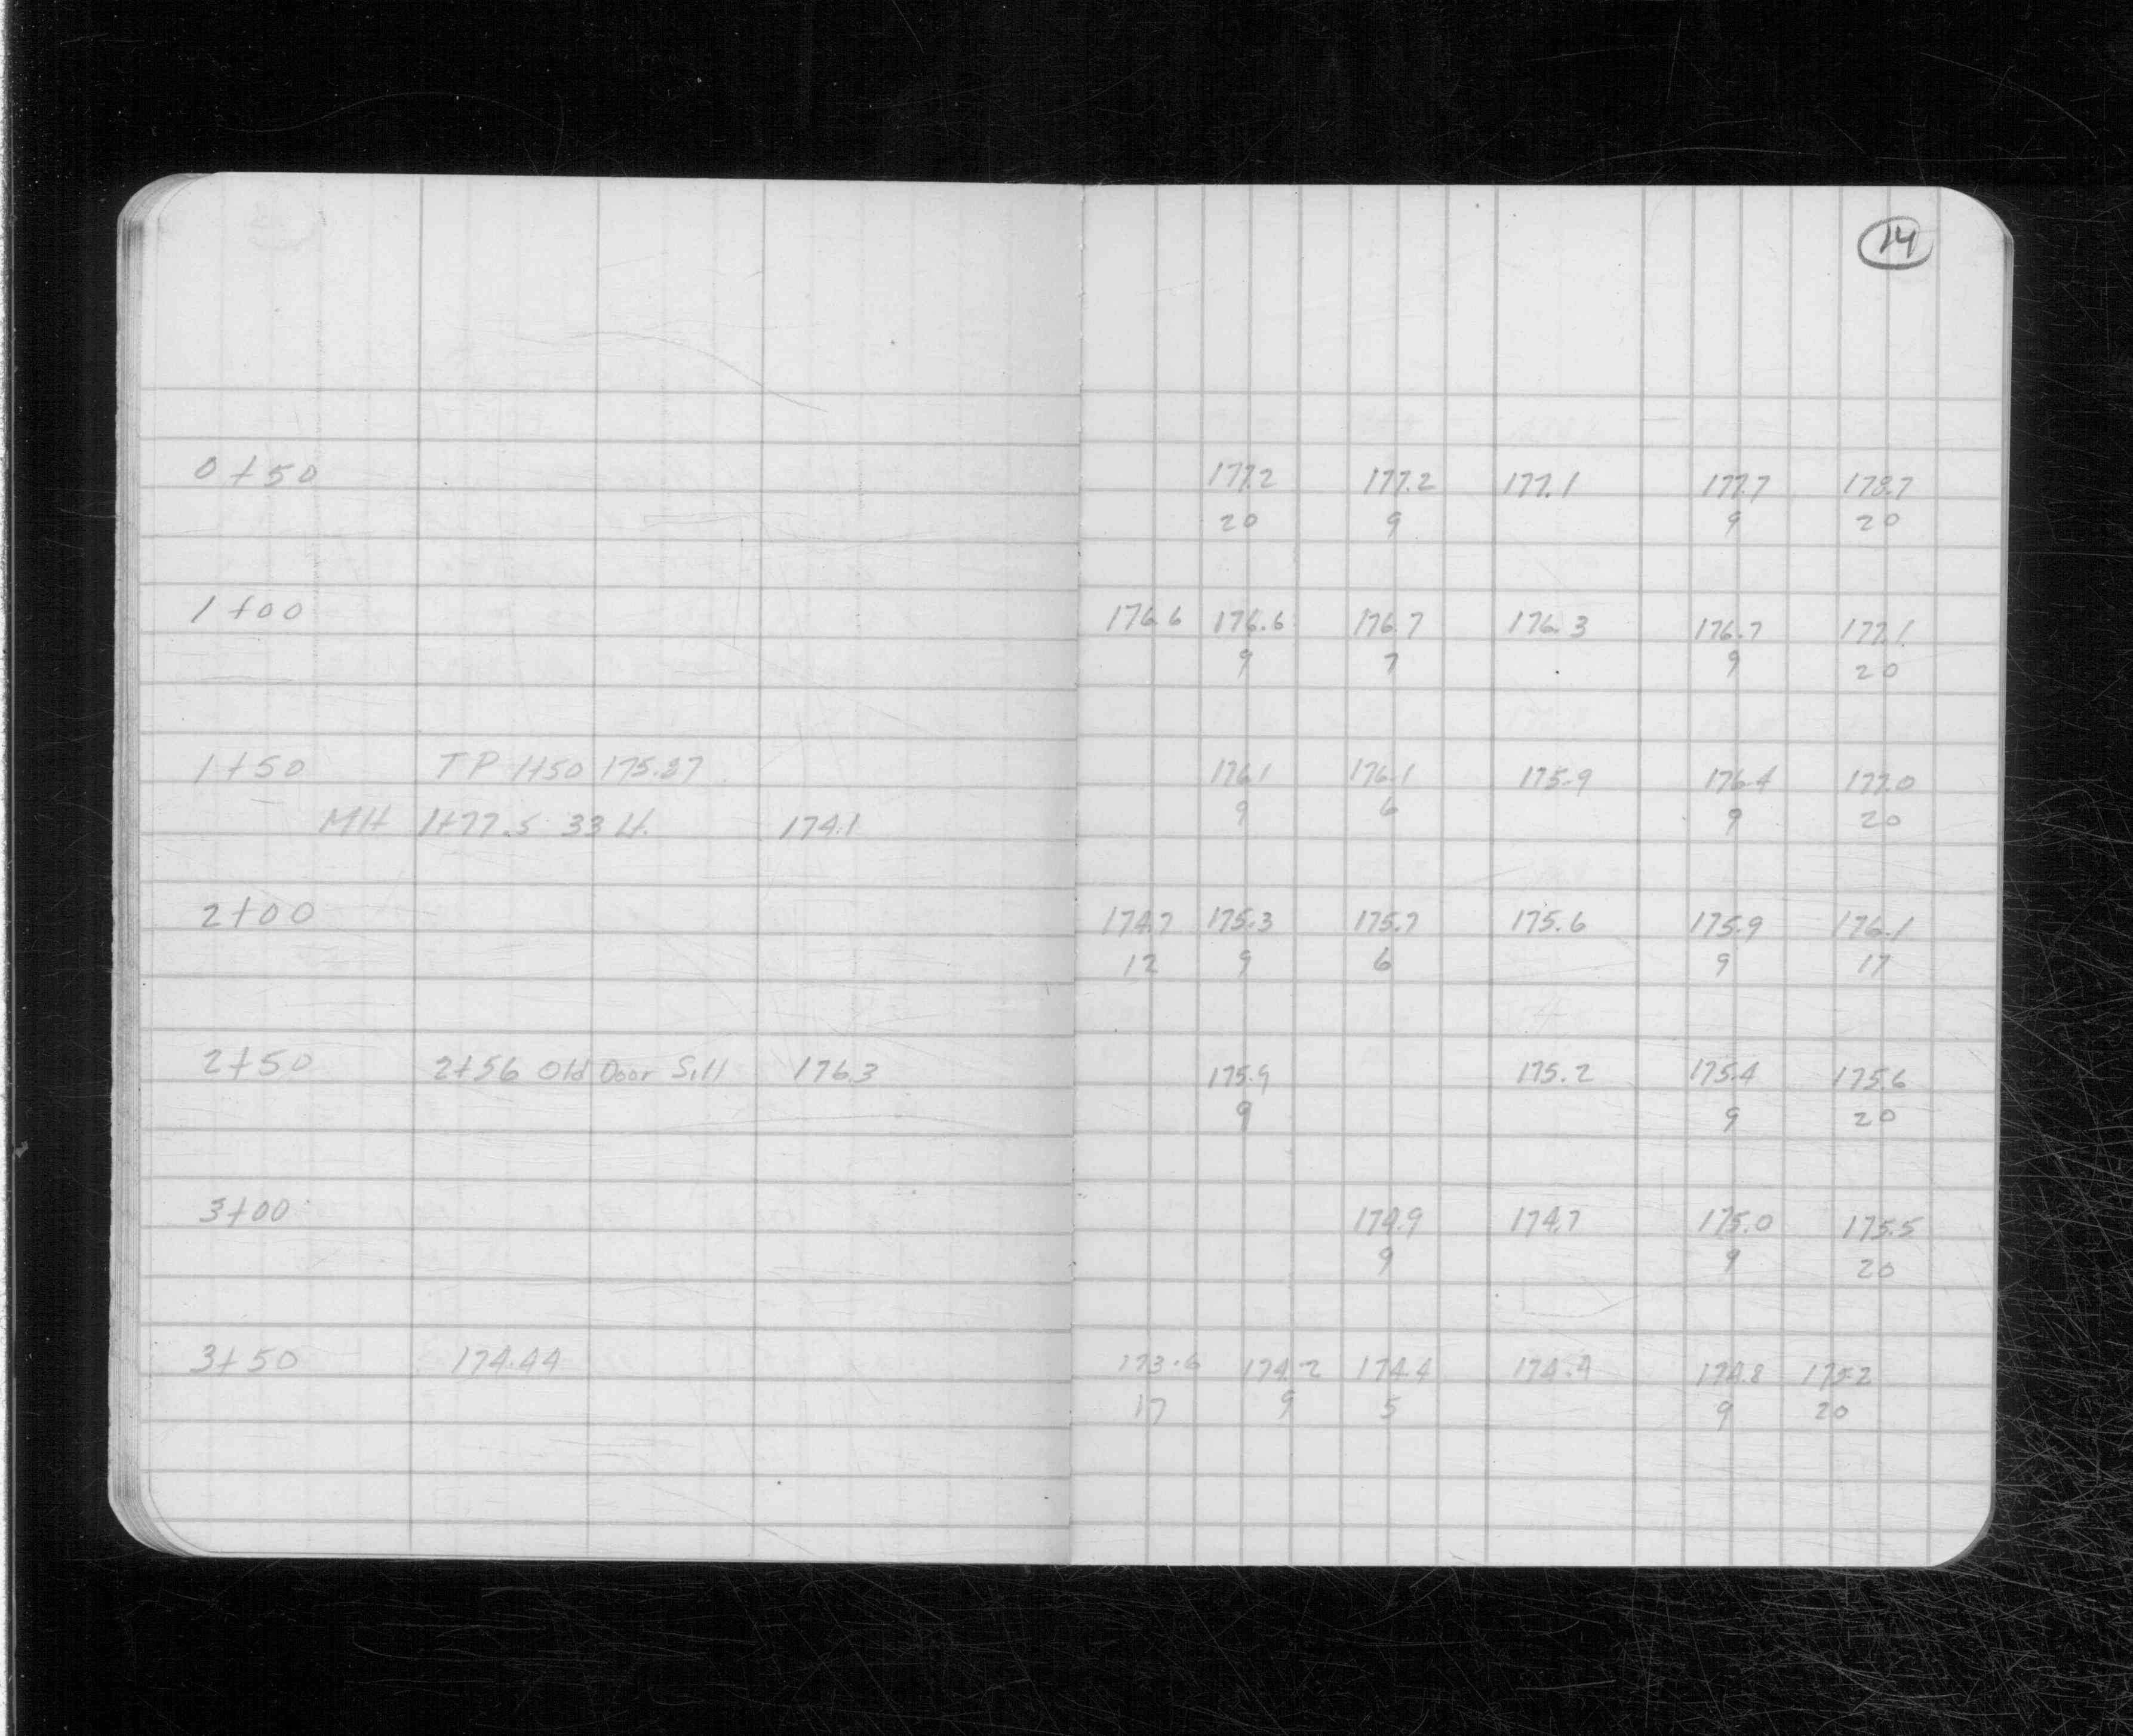 14
0+50 177.2 177.2 177.1 177.7 178.7
20 9 9 20
1+00 176.6 176.6 176.7 176.3 176.7 177.1
9 7 9 20
1+50 TP 1+50 175.87 176.1 176.1 175.9 176.4 177.0
MH 1+77.5 33 Lt. 174.1 9 6 9 20
2+00 174.7 175.3 175.7 175.6 175.9 176.1
12 9 6 9 17
2+50 2+56 Old Door Sill 176.3 175.9 175.2 175.4 175.6
9 9 20
3+00 174.9 174.7 175.0 175.5
9 9 20
3+50 174.44 173.6 174.2 174.4 174.4 174.8 175.2
17 9 5 9 20